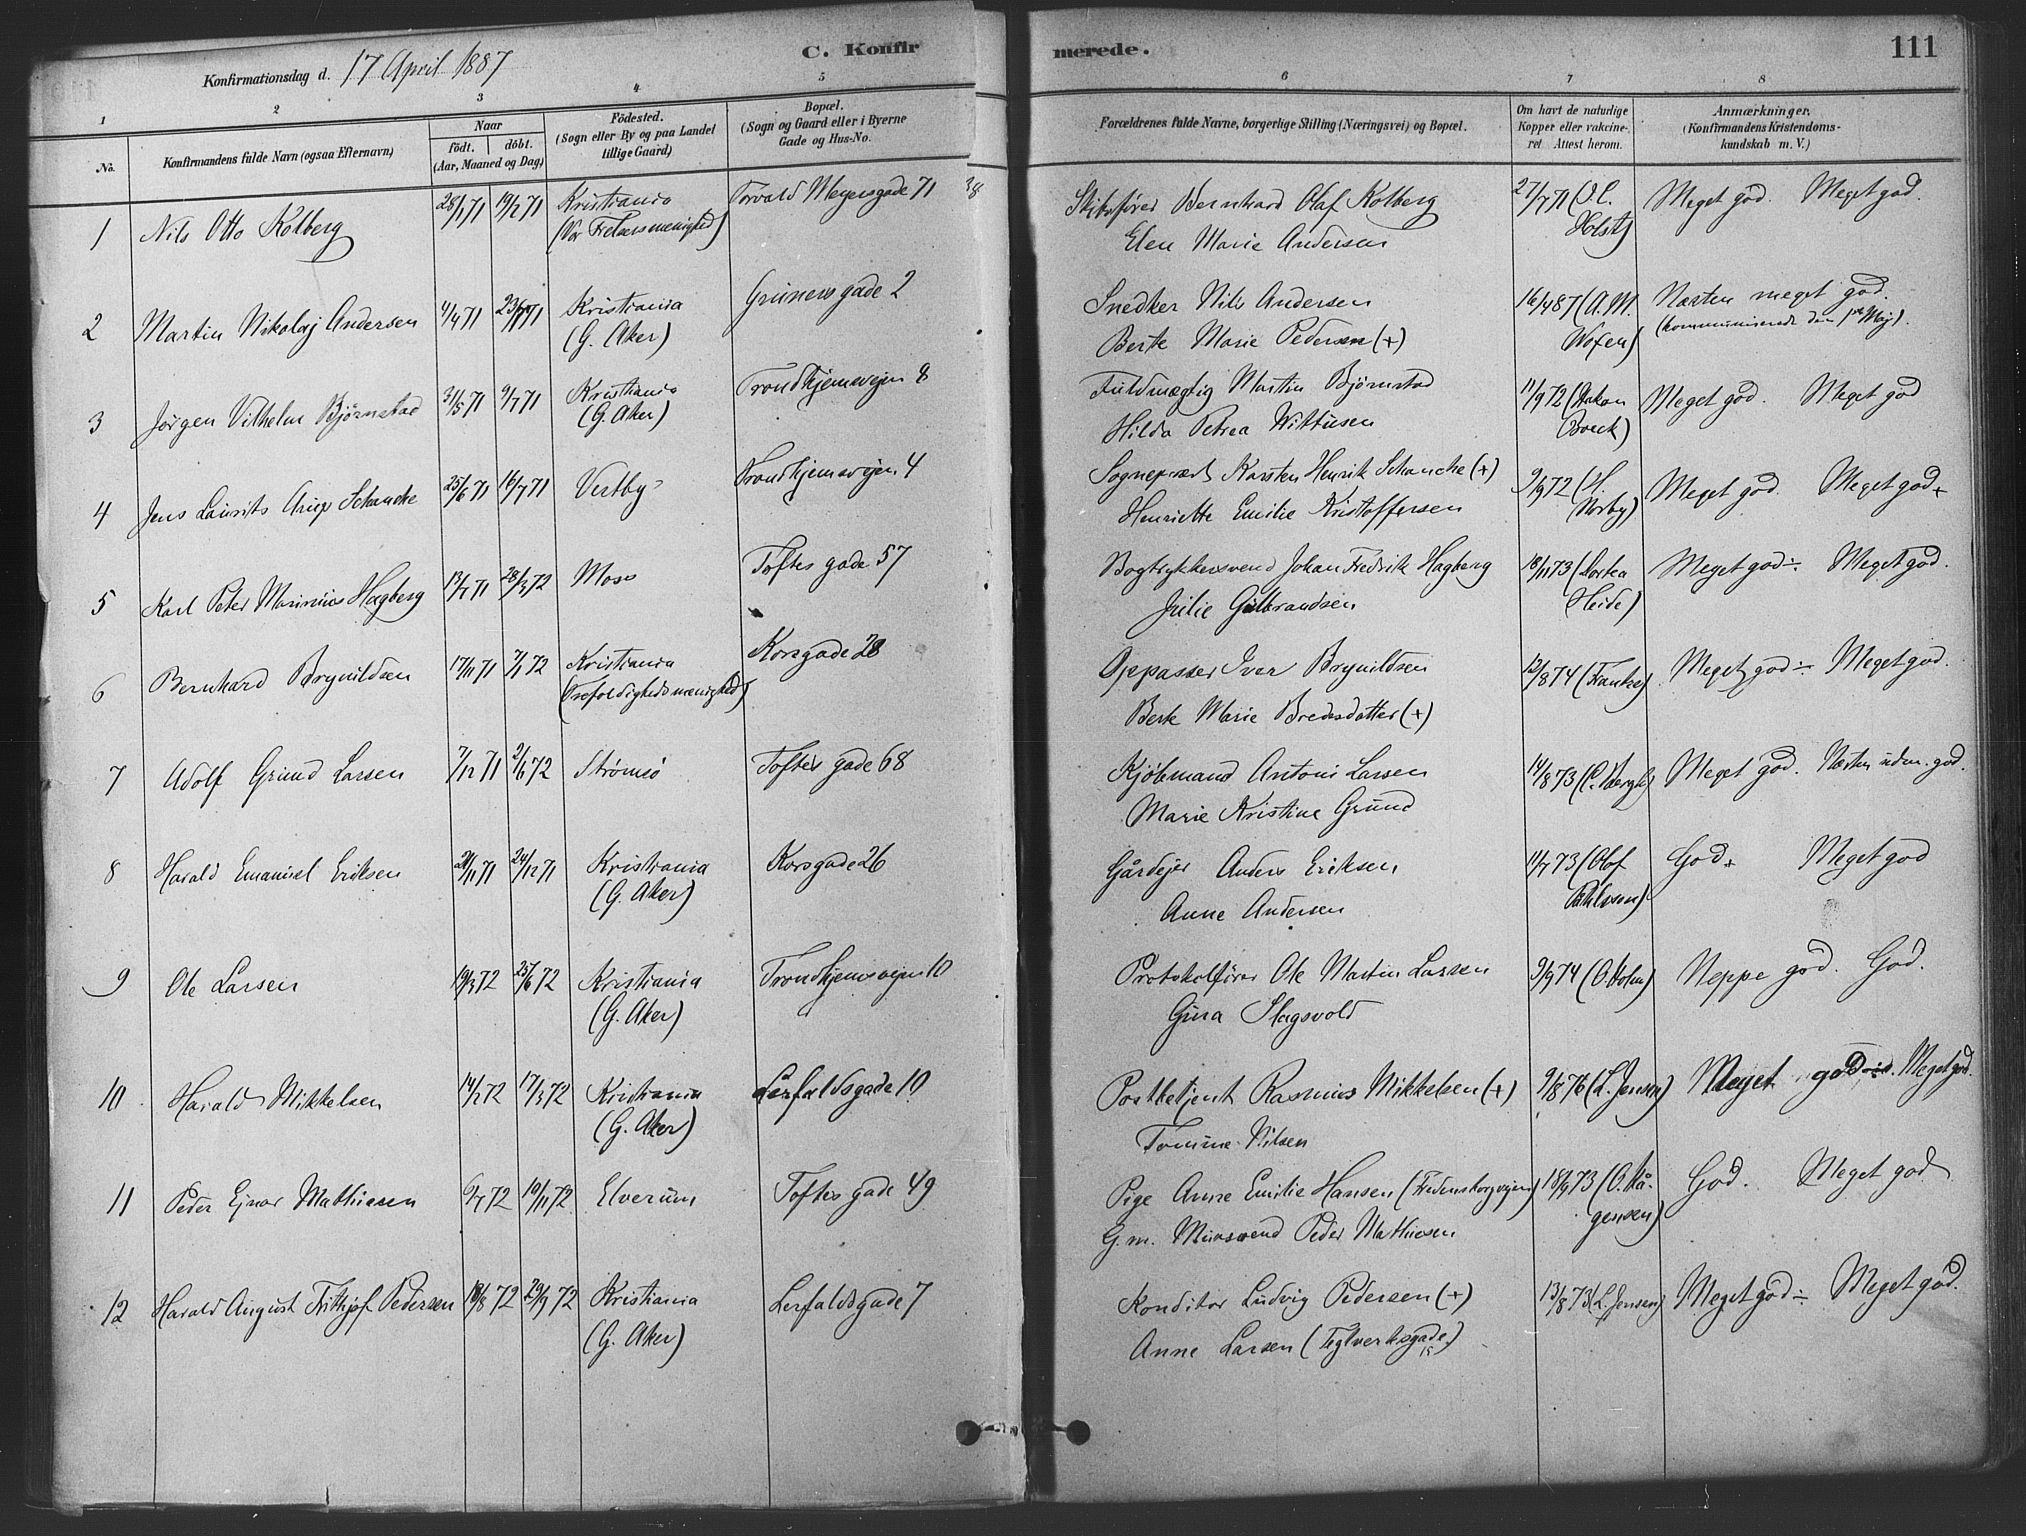 C. Konfirmerede.
111
Konfirmationsdag d. 17 April 1887
1 2 3 4 5 6 7 8
No.
Konfirmandens fulde Navn (ogsaa Efternavn)
Naar
födt. döbt.
(Aar, Maaned og Dag)
Födested.
(Sogn eller By og paa Landet
tillige Gaard)
Bopæl.
(Sogn og Gaard eller i Byerne
Gade og Hus-No.
Forældrenes fulde Navne, borgerlige Stilling (Næringsvei) og Bopæl.
Om havt de naturlige
Kopper eller vakcine-
ret Attest herom.
Anmærkninger.
(Konfirmandens Kristendoms-
kundskab m. V.)
1 Nils Otto Kolberg 28/1 71 19/2 71 Kristiania Torvald Meyersgade 71 Bernhard Olaf Kolberg 27/7 71 (J.C. Meget god. Meget god.
(Vor Frelsersmenighed) Elen Marie Andersen Holst)
2 Martin Nikolaj Andersen 4/4 71 Kristiania Grüners gade 2 Snedker Nils Andersen 16/4 87 (A.M. Næsten meget god.
(G. Aker) Berte Marie Pedersen (+) Woxen) (kommunicerede den 1ste Maj).
3 Jørgen Vilhelm Bjørnstad 31/5 71 9/7 71 Kristiania Trondhjemsvejen 8 Fuldmægtig Martin Bjørnstad 11/9 72 (Hakon Meget god. Meget god
(G. Aker) Hilda Petrea Wittusen Boeck)
4 Jens Laurits Arup Schanche 25/6 71 16/7 71 Vestby Trondhjemsvejen 4 Sognepræst Karsten Henrik Schanche (+) 9/9 72 (H. Meget god. Meget god+
Henriette Emilie Kristoffersen Norby)
5 Karl Peter Marinius Hagberg 13/7 71 28/3 72 Moss Toftes gade 57 Bogtrykkersvend Johan Fredrik Hagberg 18/11 73 (Dortea Meget god÷. Meget god.
Julie Gulbrandsen Heide)
6 Bernhard Brynildsen 17/11 71 7/1 72 Kristiania Korsgade 28 Oppasser Iver Brynildsen 12/8 74 (Frantze) Meget god÷ Meget god.
(Trefoldighedsmenighed) Berte Marie Bredesdatter (+)
7 Adolf Grund Larsen 7/12 71 2/6 72 Strømsø Toftes gade 68 Kjøbmand Antoni Larsen 14/8 73 Meget god. Næsten udm. god.
Marie Kristine Grund
8 Harald Emanuel Eriksen 21/11 71 24/12 71 Kristiania Korsgade 26 Gårdejer Anders Eriksen 11/7 73 (Olof God+ Meget god
(G. Aker) Anne Andersen
9 Ole Larsen 19/3 72 25/6 72 Kristiania Trondhjemsvejen 10 Protokolfører Ole Martin Larsen 9/9 74 (O. Holm) Neppe god. God.
(G. Aker) Gina Slagsvold
10 Harald Mikkelsen 14/2 72 17/3 72 Kristiania Lerfaldsgade 10 Postbetjent Rasmus Mikkelsen (+) 9/8 76 (L. Jensen) Meget god÷. Meget god.
(G. Aker) Tomine Nilsen
11 Peder Ejnar Mathiesen 6/7 72 10/11 72 Elverum Toftes gade 49 Pige Anne Emilie Hansen (Fredensborgvejen) 18/9 73 (O. Hå- God. Meget god
G.m. Mursvend Peder Mathiesen gensen)
12 Harald August Frithjof Pedersen 18/8 72 29/9 72 Kristiania Lerfaldsgade 7 Konditor Ludvig Pedersen (+) 13/8 73 (L. Jensen) Meget god÷ Meget god.
(G. Aker) Anne Larsen (Teglverksgade 15)